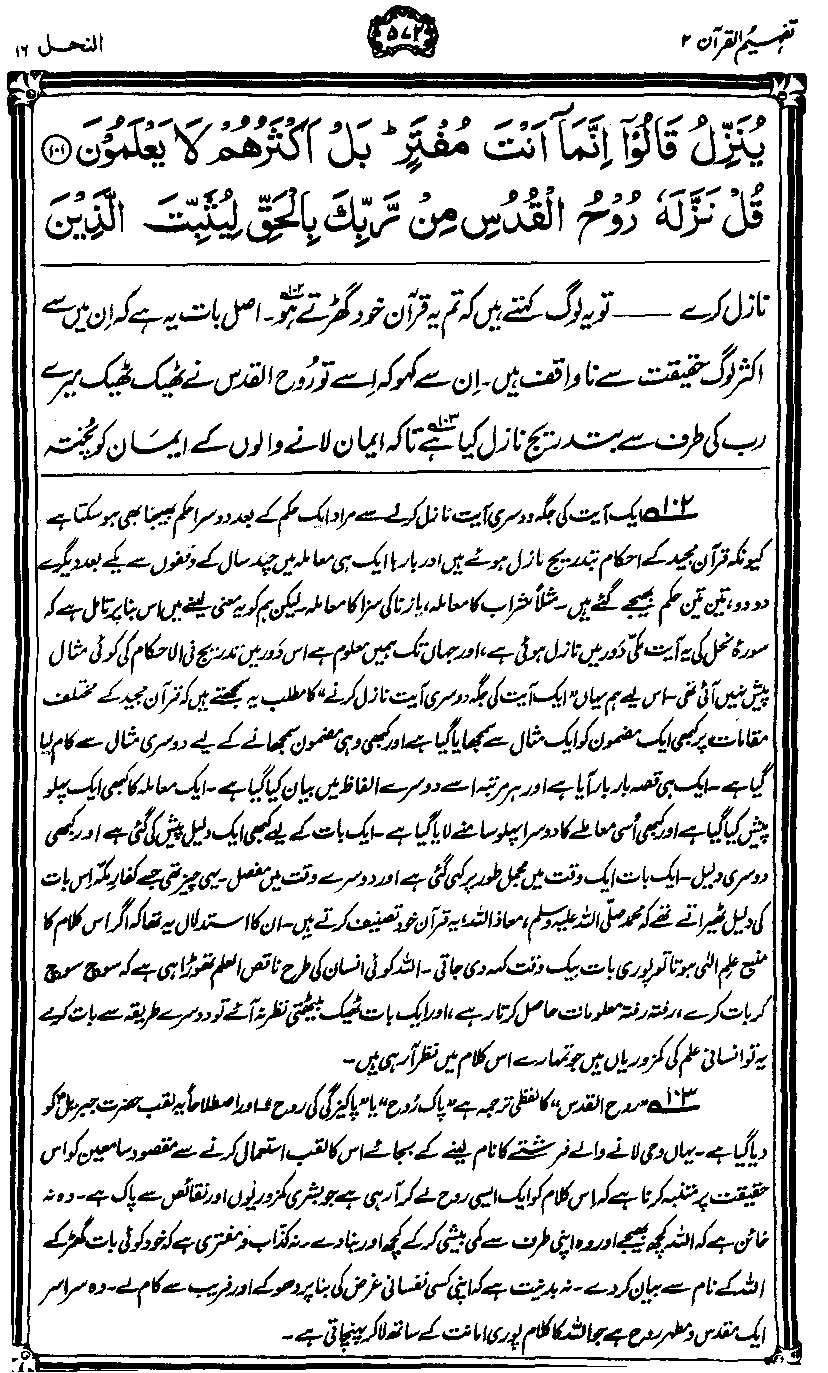 تفہیم القرآن ۲
۵۷۲
النحل ۱۶
يُنَزِّلُ قَالُوْٓا اِنَّمَآ اَنْتَ مُفْتَرٍ ؕ بَلْ اَكْثَرُهُمْ لَا يَعْلَمُوْنَ ۝۱۰۱
قُلْ نَزَّلَهٗ رُوْحُ الْقُدُسِ مِنْ رَّبِّكَ بِالْحَقِّ لِيُثَبِّتَ الَّذِيْنَ
نازل کرے ــــــ تو یہ لوگ کہتے ہیں کہ تم یہ قرآن خود گھڑتے ہو۱۰۲۔ اصل بات یہ ہے کہ اِن میں سے
اکثر لوگ حقیقت سے ناواقف ہیں۔ اِن سے کہو کہ اِسے تو رُوح القدس نے ٹھیک ٹھیک میرے
رب کی طرف سے بتدریج نازل کیا ہے۱۰۳ تاکہ ایمان لانے والوں کے ایمان کو پُختہ
۱۰۲ ایک آیت کی جگہ دوسری آیت نازل کرنے سے مراد ایک حکم کے بعد دوسرا حکم بھیجنا بھی ہو سکتا ہے
کیونکہ قرآن مجید کے احکام بتدریج نازل ہوئے ہیں اور بارہا ایک ہی معاملہ میں چند سال کے وقفوں سے یکے بعد دیگرے
دو دو، تین تین حکم بھیجے گئے ہیں۔ مثلاً شراب کا معاملہ، یا زنا کی سزا کا معاملہ۔ لیکن ہم کو یہ معنی لینے میں اس بنا پر تامل ہے کہ
سورۂ نحل کی یہ آیت مکی دَور میں نازل ہوئی ہے، اور جہاں تک ہمیں معلوم ہے اس دَور میں تدریج فی الاحکام کی کوئی مثال
پیش نہیں آئی تھی۔ اس لیے ہم یہاں "ایک آیت کی جگہ دوسری آیت نازل کرنے" کا مطلب یہ سمجھتے ہیں کہ قرآن مجید کے مختلف
مقامات پر کبھی ایک مضمون کو ایک مثال سے سمجھایا گیا ہے اور کبھی وہی مضمون سمجھانے کے لیے دوسری مثال سے کام لیا
گیا ہے۔ ایک ہی قصہ بار بار آیا ہے اور ہر مرتبہ اسے دوسرے الفاظ میں بیان کیا گیا ہے۔ ایک معاملہ کا کبھی ایک پہلو
پیش کیا گیا ہے اور کبھی اُسی معاملے کا دوسرا پہلو سامنے لایا گیا ہے۔ ایک بات کے لیے کبھی ایک دلیل پیش کی گئی ہے اور کبھی
دوسری دلیل۔ ایک بات ایک وقت میں مجمل طور پر کہی گئی ہے اور دوسرے وقت میں مفصل۔ یہی چیز تھی جسے کفار مکہ اِس بات
کی دلیل ٹھیراتے تھے کہ محمد صلّی اللہ علیہ وسلم، معاذ اللہ، یہ قرآن خود تصنیف کرتے ہیں۔ ان کا استدلال یہ تھا کہ اگر اس کلام کا
منبع علم الٰہی ہوتا تو پوری بات بیک وقت کہہ دی جاتی۔ اللہ کوئی انسان کی طرح ناقص العلم تھوڑا ہی ہے کہ سوچ سوچ
کر بات کرے، رفتہ رفتہ معلومات حاصل کرتا رہے، اور ایک بات ٹھیک بیٹھتی نظر نہ آئے تو دوسرے طریقہ سے بات کرے
یہ تو انسانی علم کی کمزوریاں ہیں جو تمہارے اس کلام میں نظر آ رہی ہیں۔
۱۰۳ "روح القدس" کا لفظی ترجمہ ہے "پاک رُوح" یا "پاکیزگی کی روح"۔ اور اصطلاحاً یہ لقب حضرت جبریلؑ کو
دیا گیا ہے۔ یہاں وحی لانے والے فرشتے کا نام لینے کے بجائے اس کا لقب استعمال کرنے سے مقصود سامعین کو اس
حقیقت پر متنبہ کرنا ہے کہ اس کلام کو ایک ایسی روح لے کر آ رہی ہے جو بشری کمزوریوں اور نقائص سے پاک ہے۔ وہ نہ
خائن ہے کہ اللہ کچھ بھیجے اور وہ اپنی طرف سے کمی بیشی کر کے کچھ اور بنا دے۔ نہ کذاب و مفتری ہے کہ خود کوئی بات گھڑ کے
اللہ کے نام سے بیان کر دے۔ نہ بد نیت ہے کہ اپنی کسی نفسانی غرض کی بنا پر دھوکے اور فریب سے کام لے۔ وہ سراسر
ایک مقدس و مطہر روح ہے جو اللہ کا کلام پوری امانت کے ساتھ لا کر پہنچاتی ہے۔